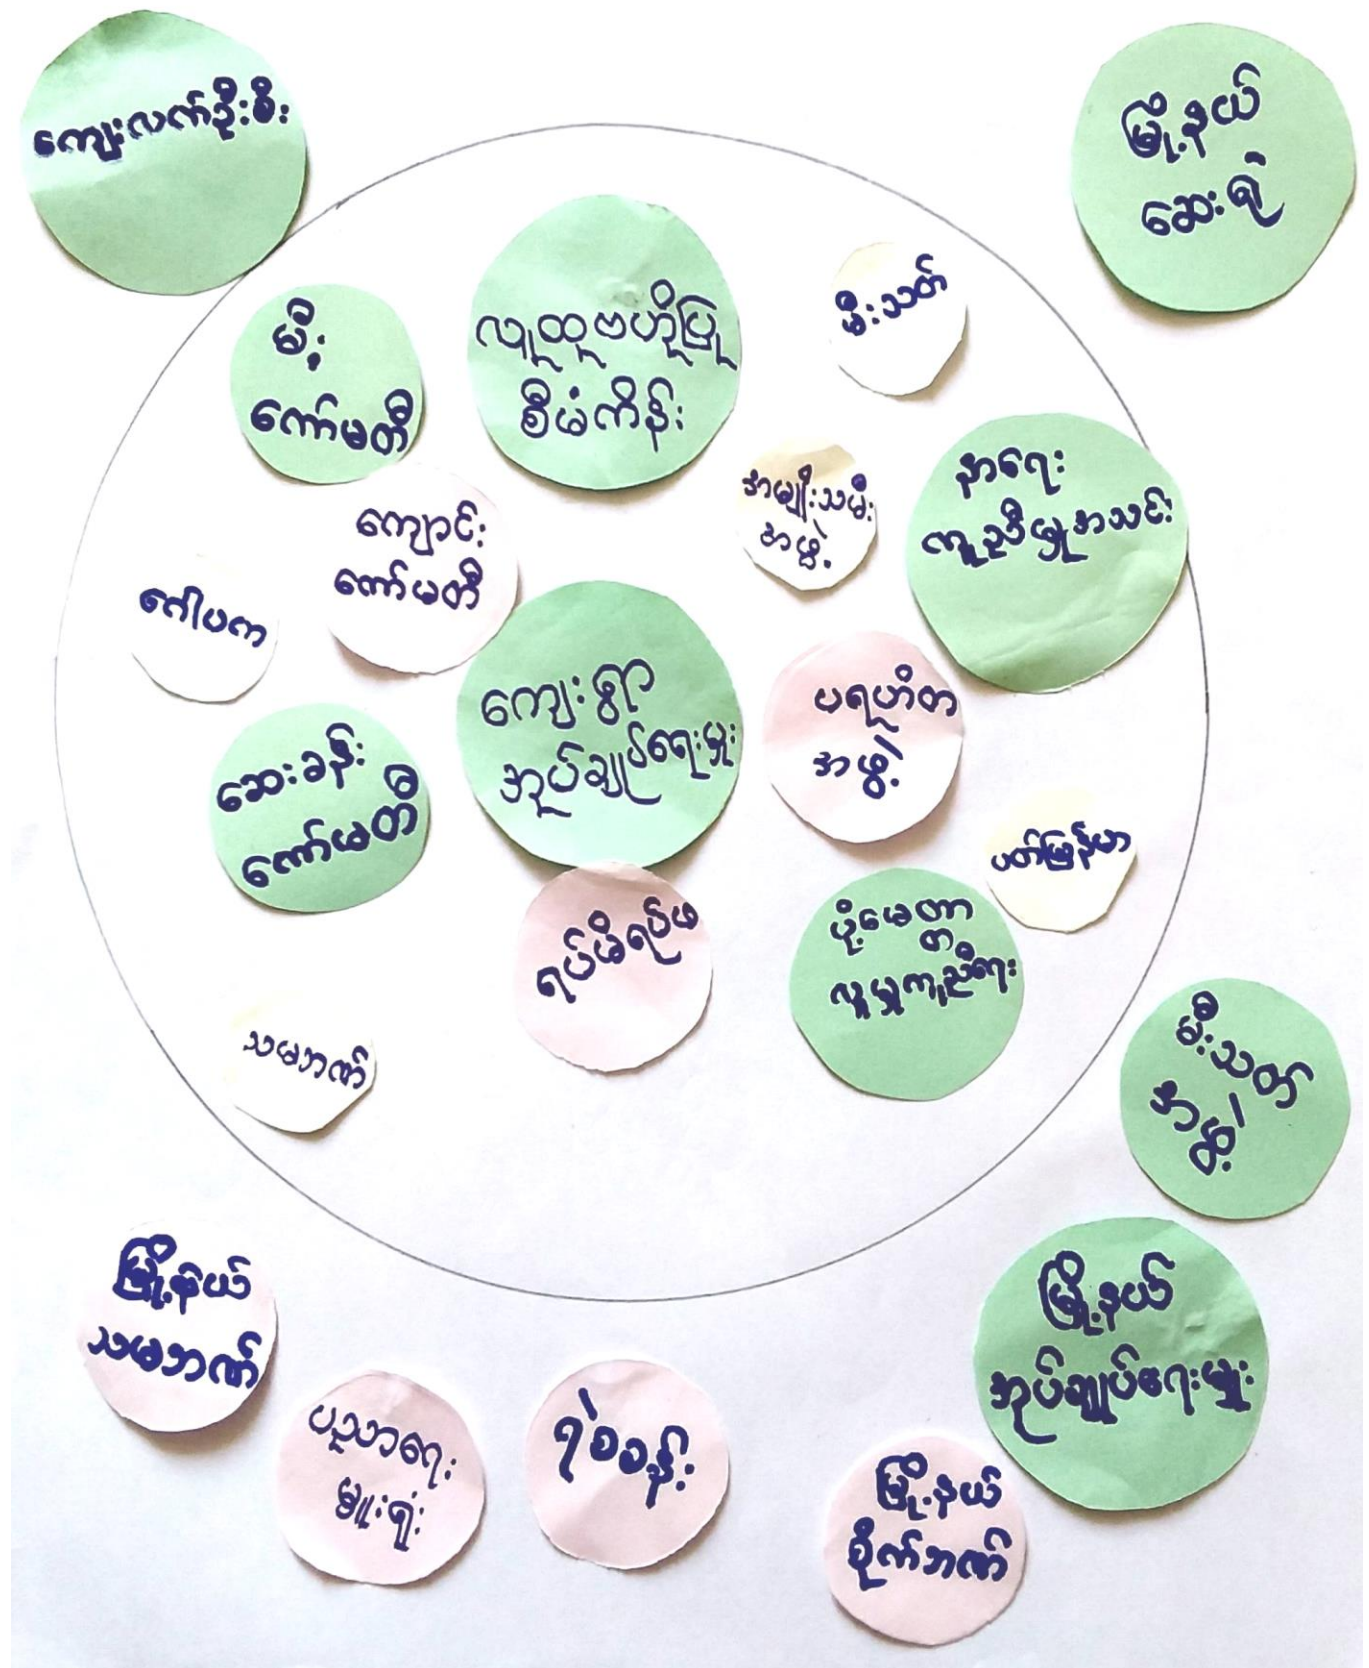 ကျေးလက်ဦးစီး
မြို့နယ်
ဆေးရုံ
မီး
ကော်မတီ
လူထုဗဟိုပြု
စီမံကိန်း
မီးသတ်
အမျိုးသမီး
အဖွဲ့
နာရေး
ကူညီမှုအသင်း
ကျောင်း
ကော်မတီ
ဂေါပက
ကျေးရွာ
အုပ်ချုပ်ရေးမှူး
ပရဟိတ
အဖွဲ့
ဆေးခန်း
ကော်မတီ
ပတ်မြန်မာ
ရပ်မိရပ်ဖ
ပို့မေတ္တာ
လူမှုကူညီရေး
သမဘဏ်
မီးသတ်
အဖွဲ့
မြို့နယ်
သမဘဏ်
ပညာရေး
မှူးရုံး
ရဲစခန်း
မြို့နယ်
အုပ်ချုပ်ရေးမှူး
မြို့နယ်
စိုက်ဘဏ်